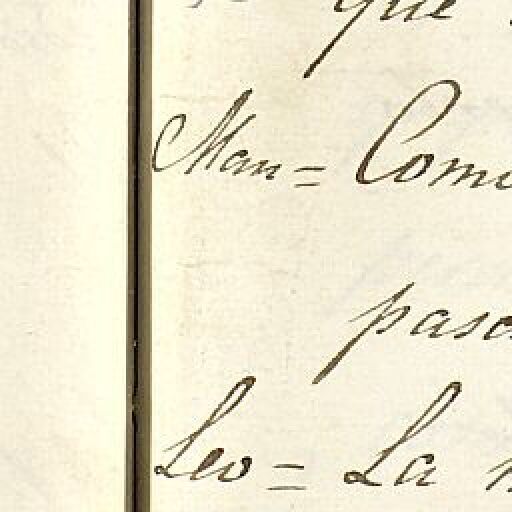 que
Man = Com
pasa
Leo = La